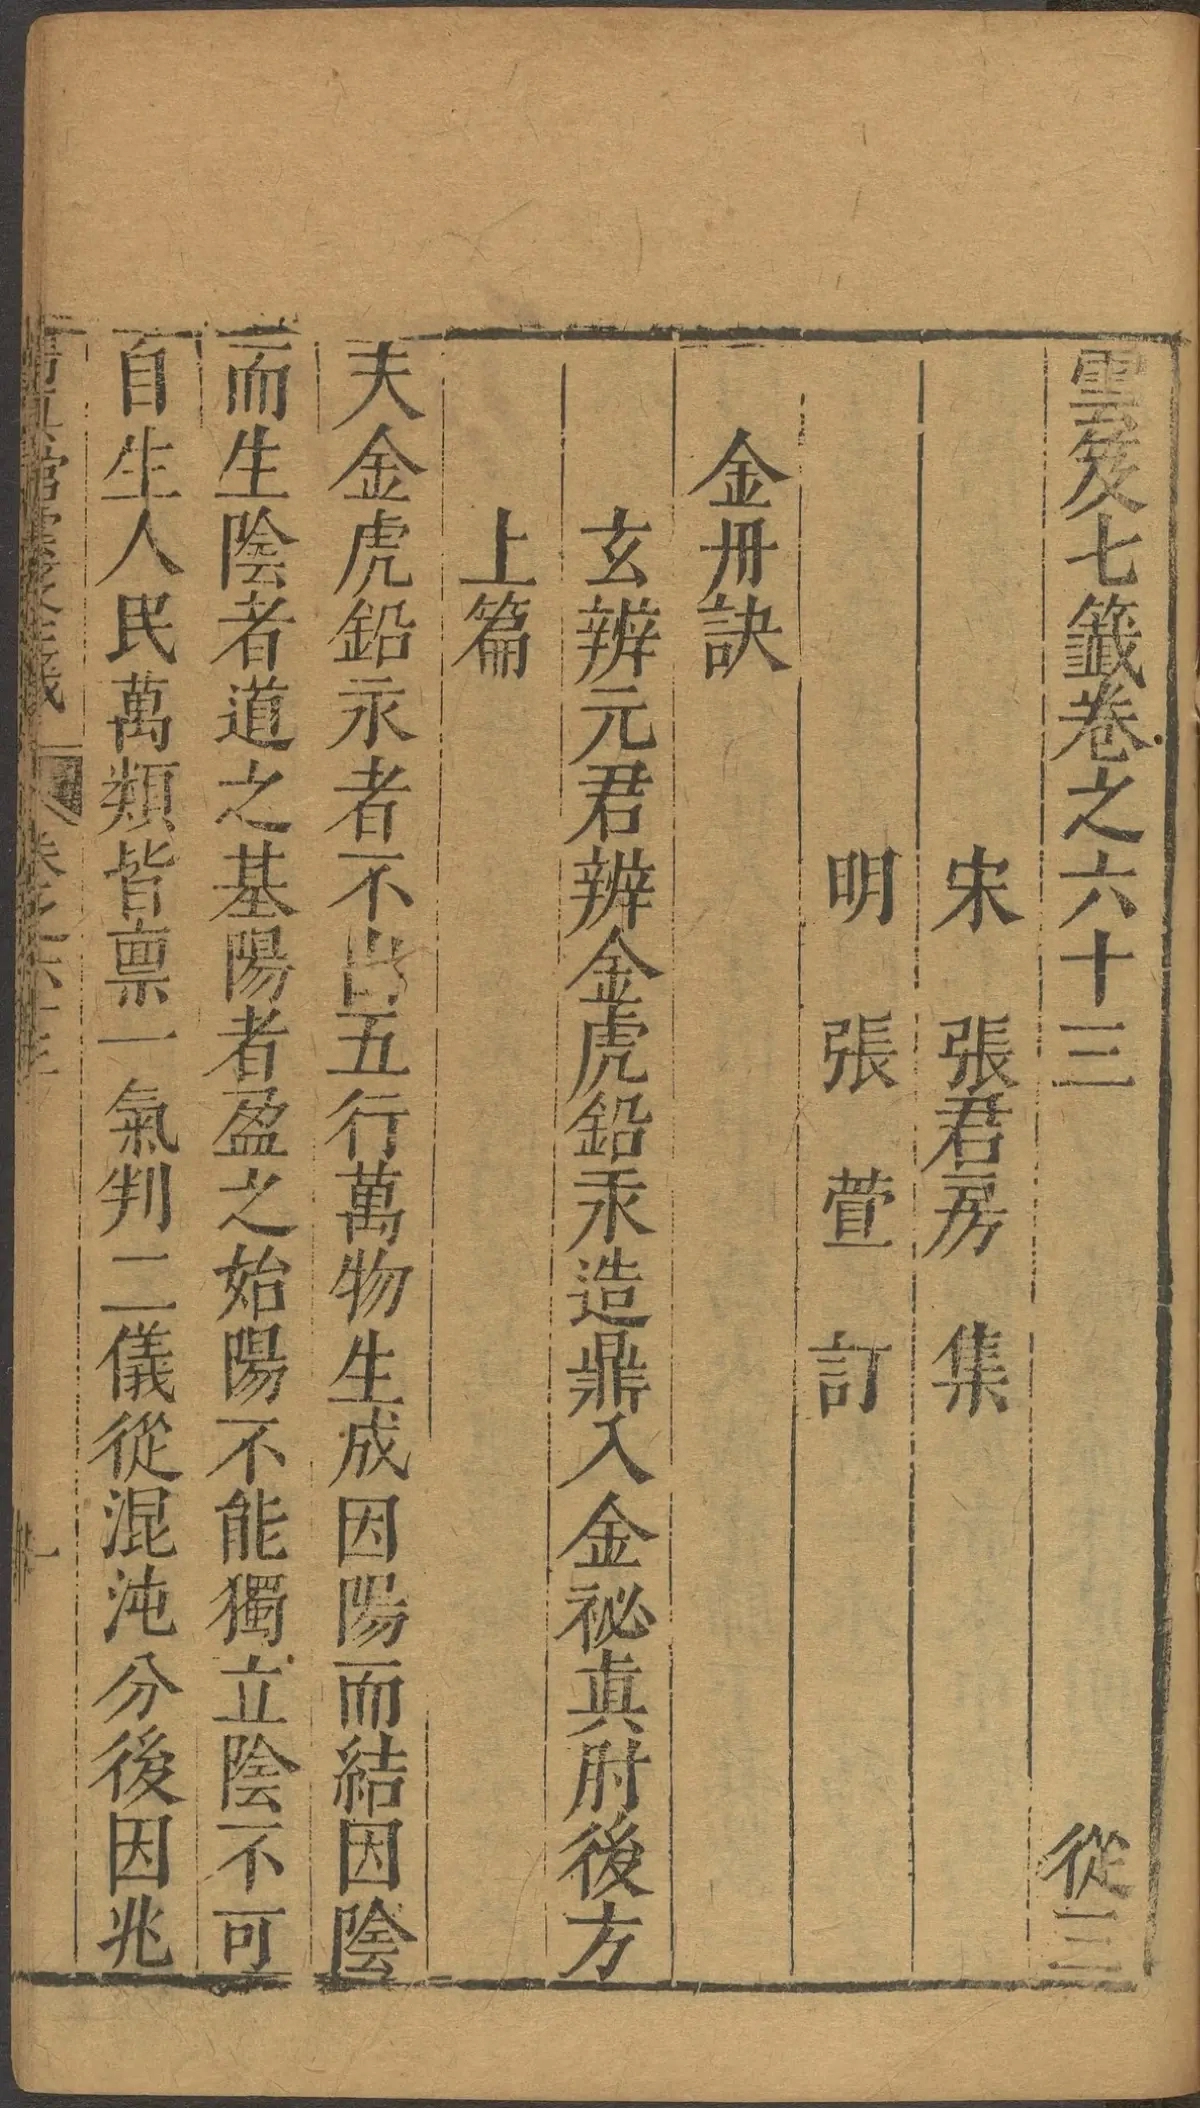 雲笈七籤卷之六十三　從三
宋　張君房　集
明　張萱　訂
金丹訣
玄辨元君辨金虎鉛汞造鼎入金祕真肘後方
上篇
夫金虎鉛汞者不出五行萬物生成因陽而結因陰
而生陰者道之基陽者盈之始陽不能獨立陰不可
自生人民萬類皆禀一氣判二儀從混沌分後因兆
卷之六十三　一